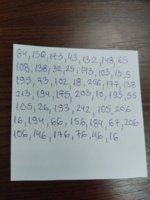 84, 156, 173, 43, 132, 148, 65
108, 138, 32, 25, 173, 103, 135
193, 43, 102, 18, 206, 177, 138
213, 194, 175, 203, 10, 193, 55
105, 26, 193, 242, 105, 206
16, 194, 66, 156, 184, 67, 206
106, 146, 176, 76, 46, 16